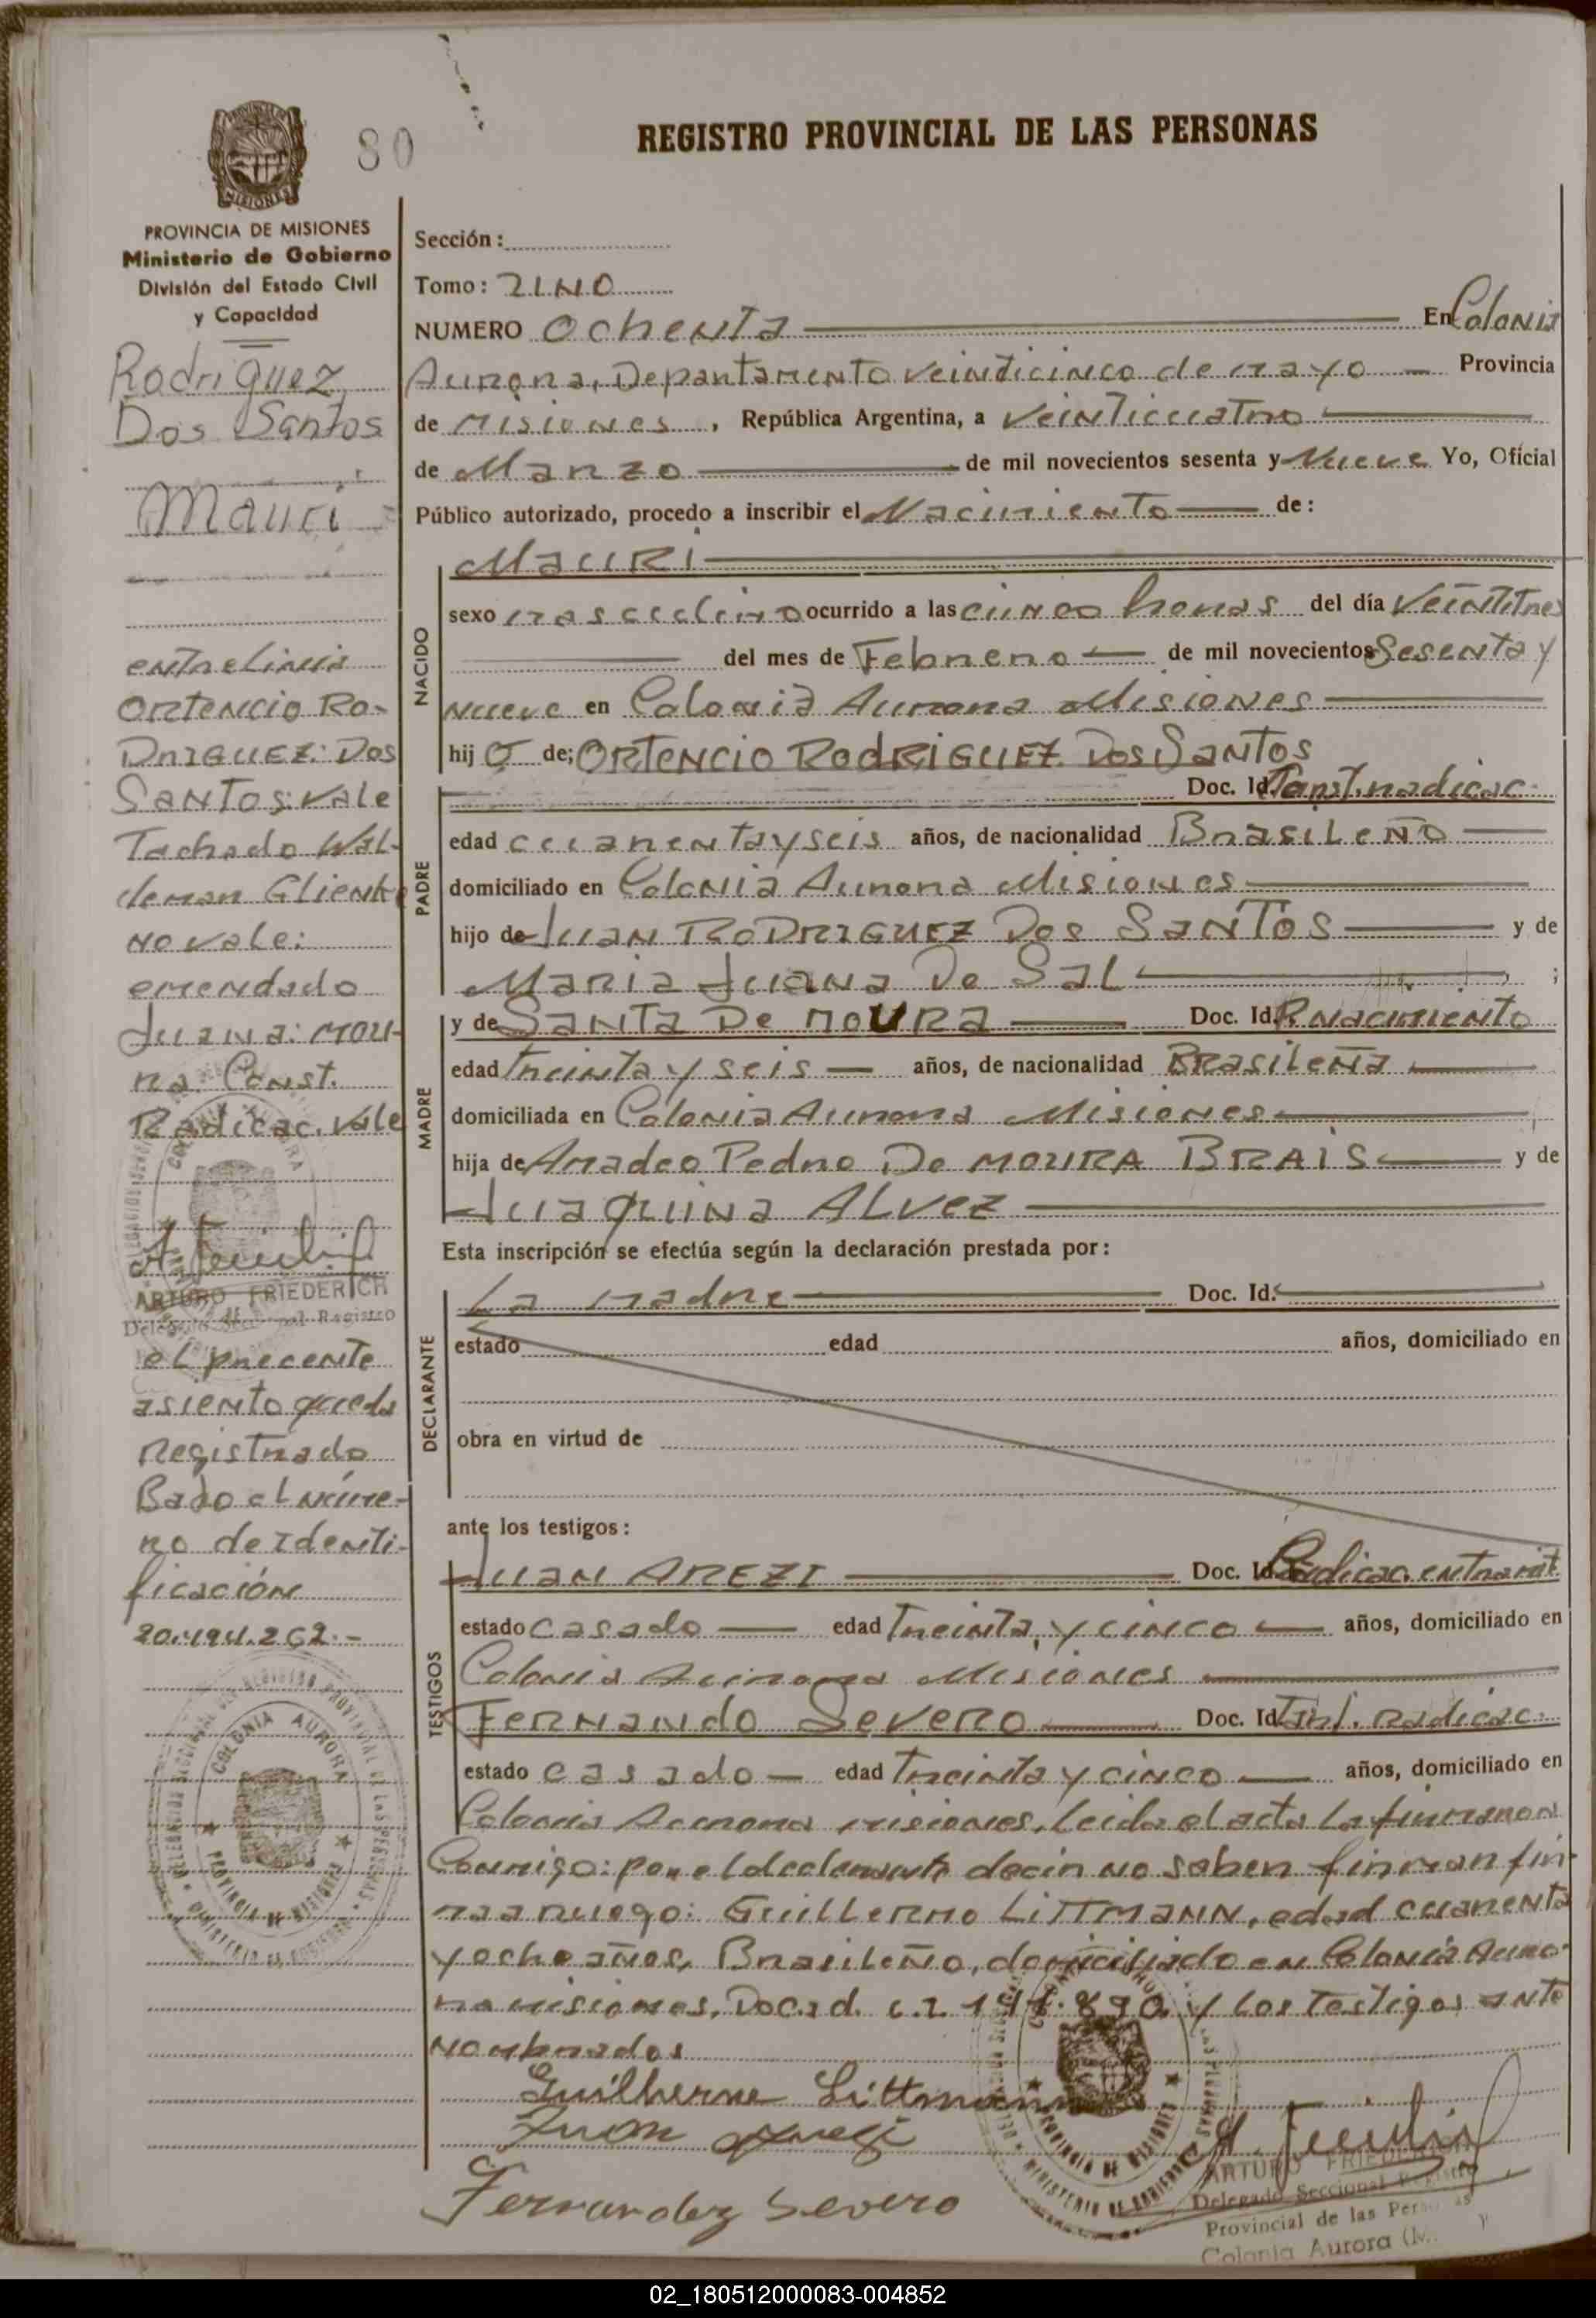 80
REGISTRO PROVINCIAL DE LAS PERSONAS
PROVINCIA DE MISIONES
Ministerio de Gobierno
División del Estado Civil
y Capacidad
Rodriguez
Dos Santos
Mauri
entrelinia
ORTENCIO RO-
DRIGUEZ: DOS
SANTOS: vale
Tachado Wal-
deman Glienke
NO vale:
emendado
Juana: MOU-
ra Const.
Radicac. vale
ARTURO FRIEDERICH
Delegado Seccional Registro
el precente
asiento queda
Registrado
Bajo el núme-
ro de identi-
ficación
20.194.262.-
COLONIA AURORA
PROVINCIA DE MISIONES
Sección:
Tomo: UNO
NUMERO Ochenta En Colonia
Aurora, Departamento veinticinco de mayo Provincia
de Misiones, República Argentina, a veinticuatro
de Marzo de mil novecientos sesenta y Nueve Yo, Oficial
Público autorizado, procedo a inscribir el Nacimiento de:
NACIDO
MAURI
sexo masculino ocurrido a las cinco horas del día veintitres
del mes de Febrero de mil novecientos Sesenta y
nueve en Colonia Aurora Misiones
hijo de; ORTENCIO RODRIGUEZ DOS SANTOS
PADRE
Doc. Id. Const. radicac.
edad cuarenta y seis años, de nacionalidad Brasileño
domiciliado en Colonia Aurora Misiones
hijo de JUAN RODRIGUEZ Dos SANTOS y de
Maria Juana De Sal ;
MADRE
y de SANTA De MOURA Doc. Id. P. Nacimiento
edad treinta y seis años, de nacionalidad Brasileña
domiciliada en Colonia Aurora Misiones
hija de Amadeo Pedro De MOURA BRAIS y de
Juaquina ALVEZ
Esta inscripción se efectúa según la declaración prestada por:
DECLARANTE
La madre Doc. Id.
estado edad años, domiciliado en
obra en virtud de
ante los testigos:
TESTIGOS
JUAN AREZI Doc. Id. Radicac. entramit.
estado casado edad Treinta y cinco años, domiciliado en
Colonia Aurora Misiones
FERNANDO SEVERO Doc. Id. radicac.
estado casado edad treinta y cinco años, domiciliado en
Colonia Aurora misiones, Leida el acta La firmaron
Conmigo: por el declarante decir no saben firman fir-
ma a ruego: Guillermo LITTMANN, edad cuarenta
y ocho años, Brasileño, domiciliado en Colonia Auro-
ra misiones, Doc. id. y los testigos ante
nombrados
Guilherme Littmann
Juon Arezi
Fernandez Severo
ARTURO FRIEDERICH
Delegado Seccional Registro
Provincial de las Personas
Colonia Aurora
02_180512000083-004852